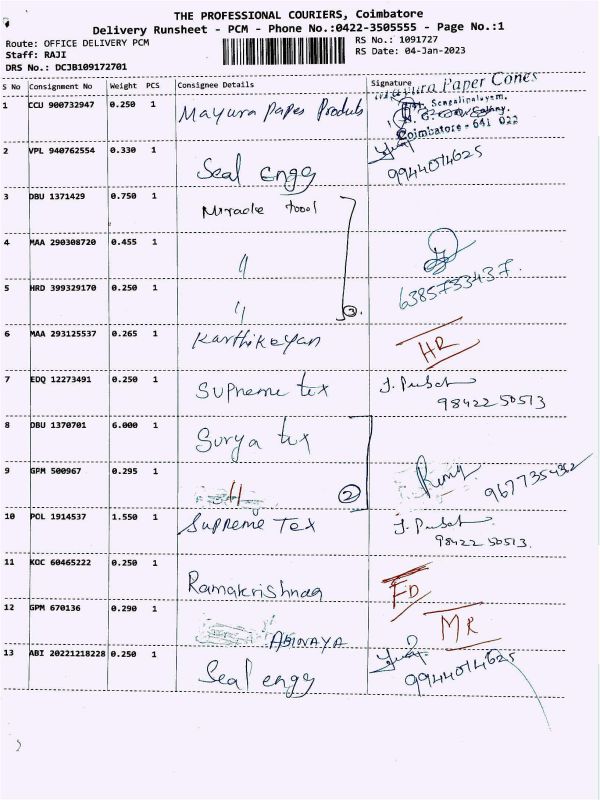 THE PROFESSIONAL COURIERS, Coimbatore
Delivery Runsheet - PCM - Phone No.:0422-3505555 - Page No.:1
Route: OFFICE DELIVERY PCM RS No.: 1091727
Staff: RAJI RS Date: 04-Jan-2023
DRS No.: DCJB109172701
S No Consignment No Weight PCS Consignee Details Signature
Mayura Paper Cones
1 CCU 900732947 0.250 1 Mayura Papes Produts
Sengalipalayam.
Coimbatore - 641 022
2 VPL 940762554 0.330 1 Seal engg 9944014625
3 DBU 1371429 0.750 1 Miracle tool
4 MAA 290308720 0.455 1 "
5 HRD 399329170 0.250 1 " 3 6385733437.
6 MAA 293125537 0.265 1 Karthikeyan HR
7 EDQ 12273491 0.250 1 Supreme tex
98422 50513
8 DBU 1370701 6.000 1 Surya tex
9 GPM 500967 0.295 1 " 2 9677354362
10 POL 1914537 1.550 1 Supreme Tex
98422 50513.
11 KOC 60465222 0.250 1 Ramakrishnan FD
12 GPM 670136 0.290 1 ABINAYA MR
13 ABI 20221218228 0.250 1 Seal engg 9944014625